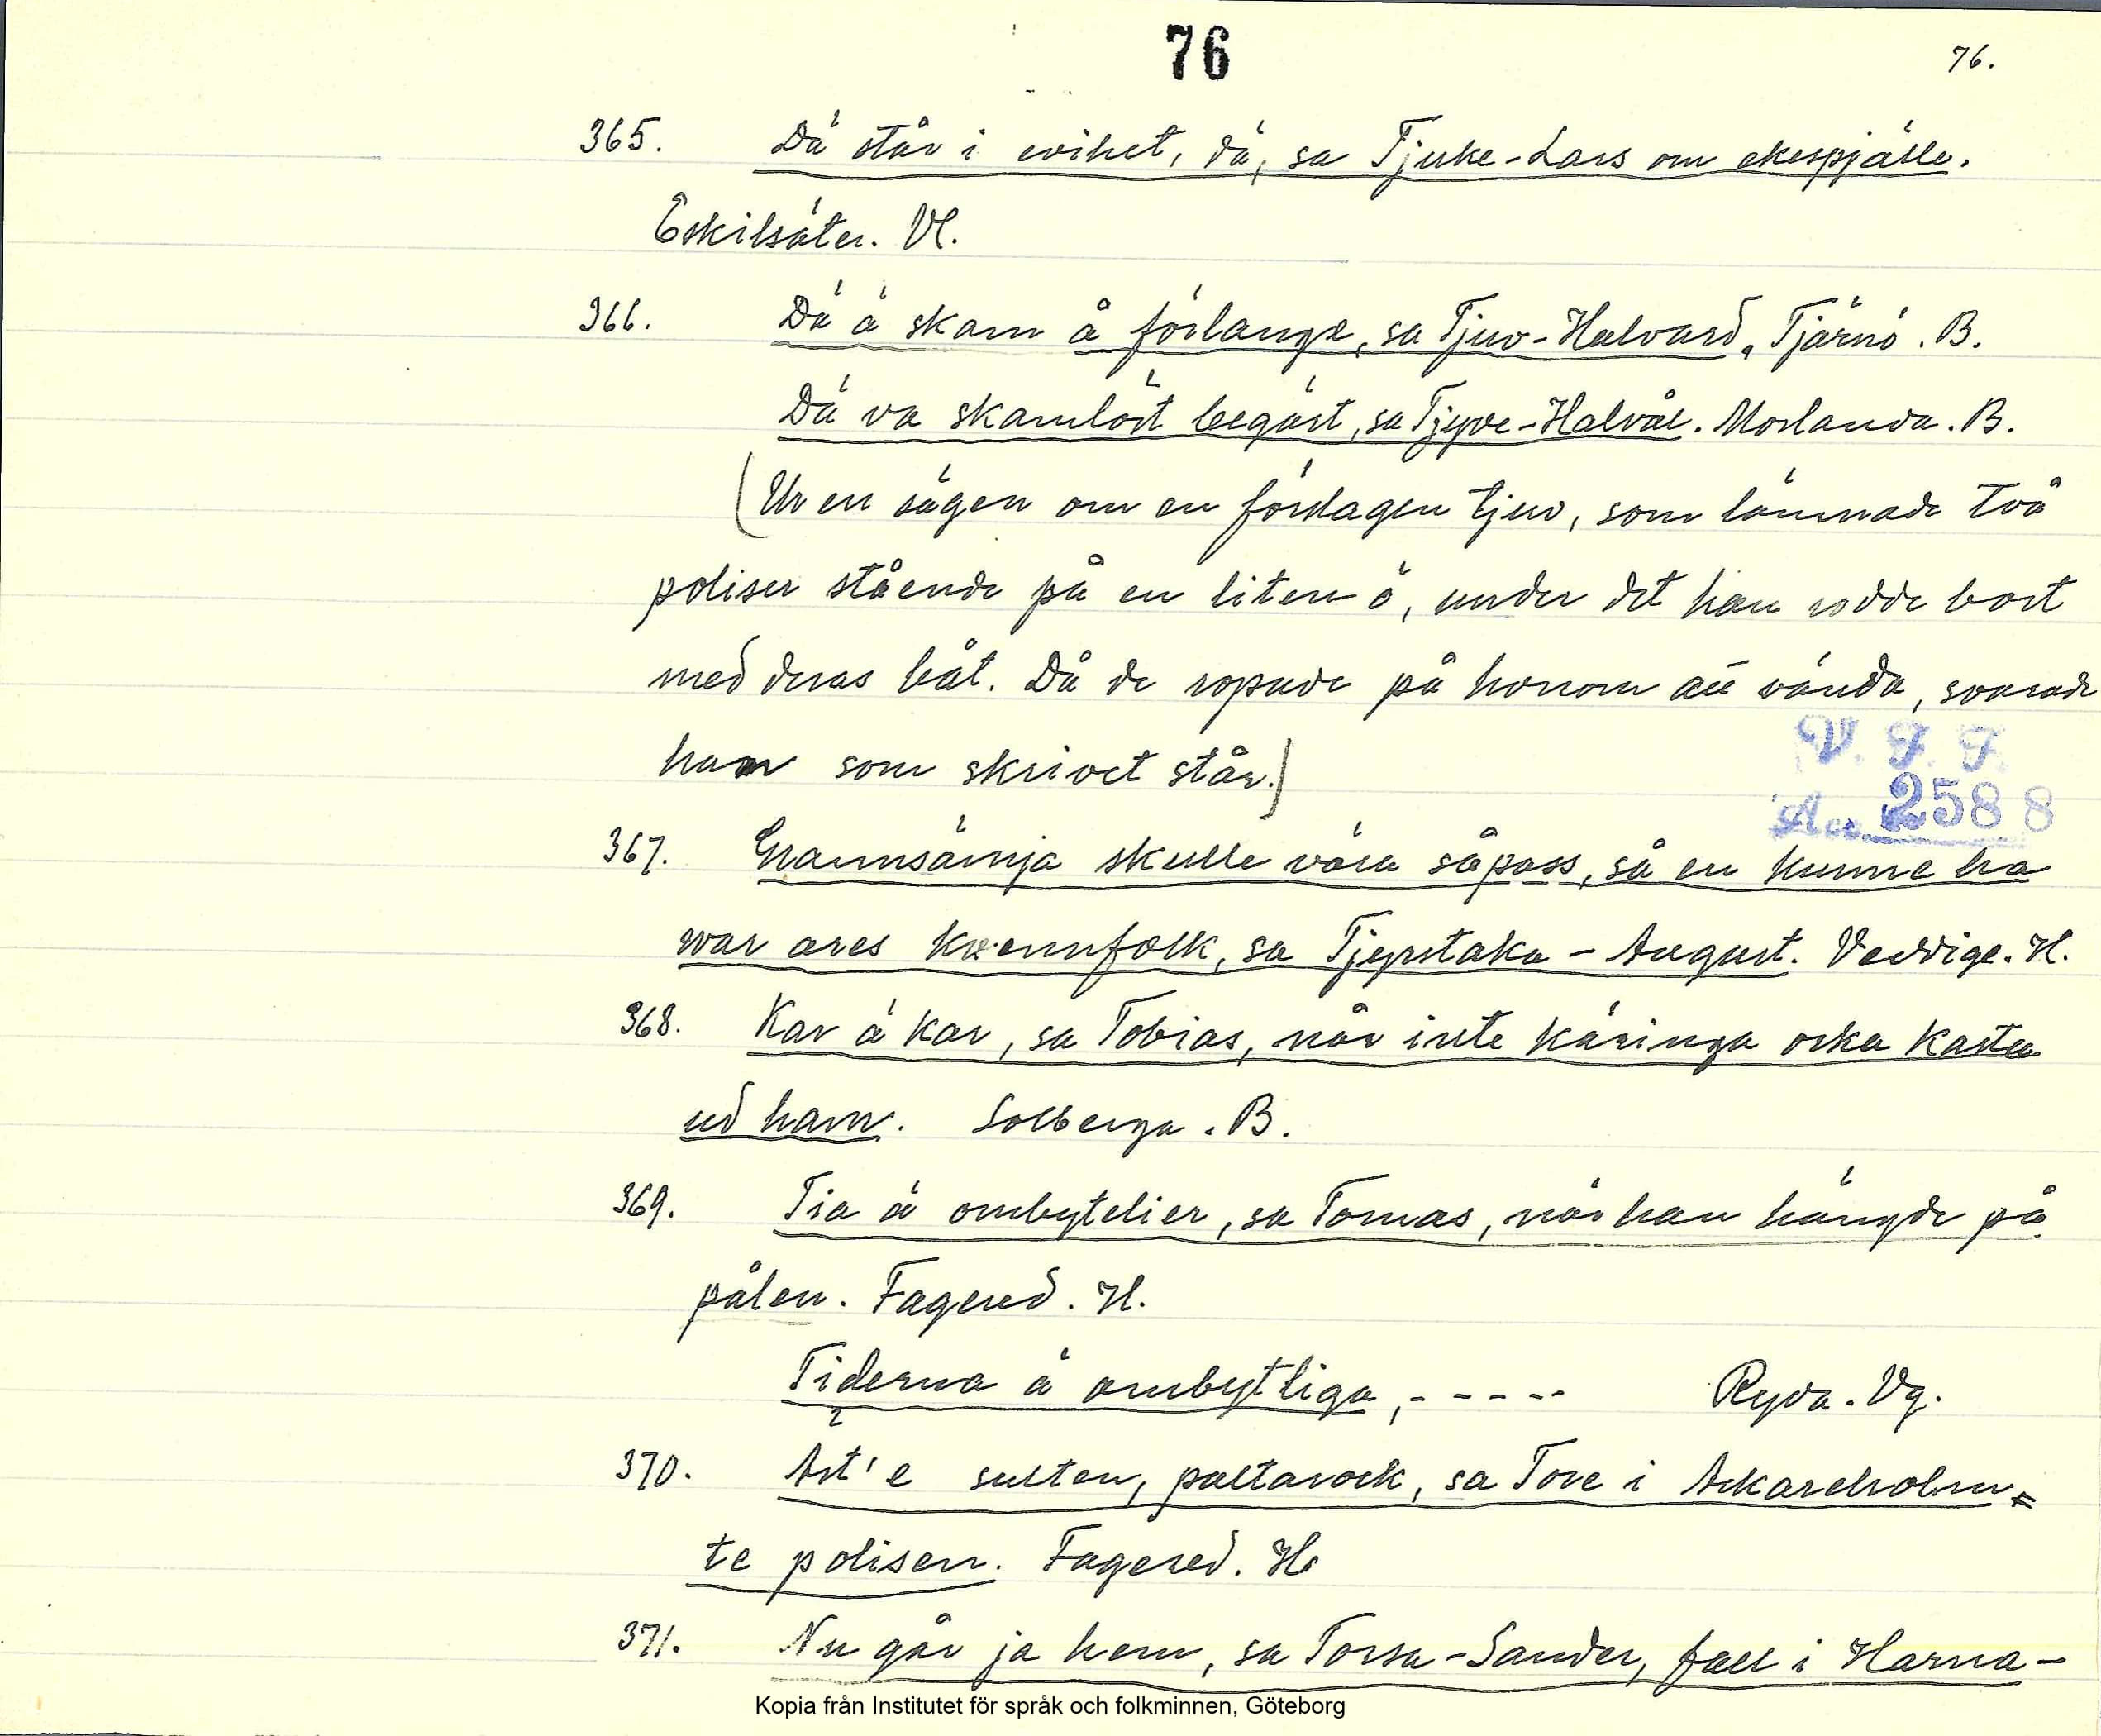 76
76.
365. Dä står i evihet, dä, sa Tjuke-Lars om ekespjälle.
Eskilsäter. Vl.
366. Dä ä skam å förlange, sa Tjuv-Halvard. Tjärnö. B.
Dä va skamlöst begärt, sa Tjyve-Halvål. Morlanda. B.
(Ur en sägen om en förslagen tjuv, som lämnade två
poliser stående på en liten ö, under det han rodde bort
med deras båt. Då de ropade på honom att vända, svarade
han som skrivet står.)
V. F. F.
Acc. 2588
367. Grannsämja skulle vära såpass, så en kunne ha
var ares kvennfolk, sa Tjyrstaka-August. Veddige. H.
368. Kar ä kar, sa Tobias, når inte käringa orka kasta
ud ham. Solberga. B.
369. Tia ä ombytelier, sa Tomas, när han hängde på
pålen. Fagered. H.
Tiderna ä ombytliga, - - - - - Ryda. Vg.
370. Äst'e sulten, paltarock, sa Tore i Askareholm
te polisen. Fagered. H.
371. Nu går ja hem, sa Torsa-Sander, fall i Harna-
Kopia från Institutet för språk och folkminnen, Göteborg